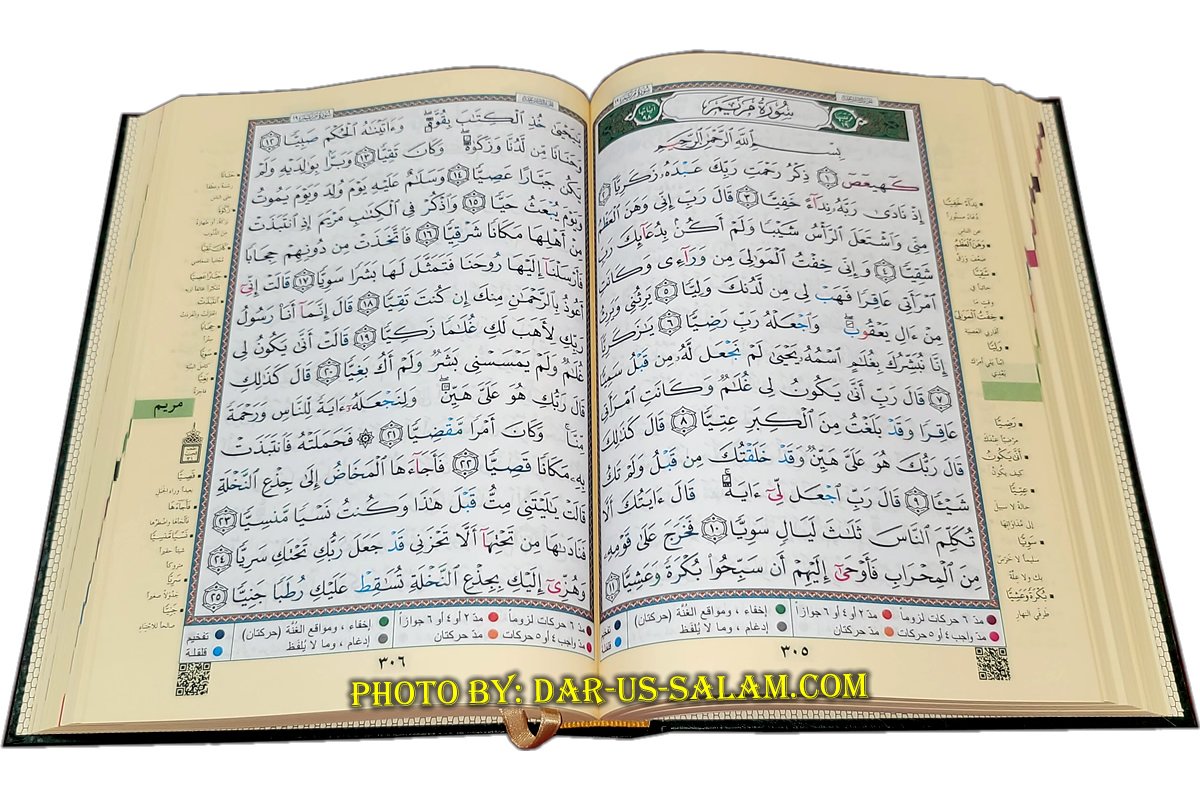 سُورَةُ مَرْيَمَ
بِسْمِ ٱللَّهِ ٱلرَّحْمَٰنِ ٱلرَّحِيمِ
كٓهيعٓصٓ ١ ذِكْرُ رَحْمَتِ رَبِّكَ عَبْدَهُۥ زَكَرِيَّآ ٢
إِذْ نَادَىٰ رَبَّهُۥ نِدَآءً خَفِيًّا ٣ قَالَ رَبِّ إِنِّى وَهَنَ ٱلْعَظْمُ
مِنِّى وَٱشْتَعَلَ ٱلرَّأْسُ شَيْبًا وَلَمْ أَكُنۢ بِدُعَآئِكَ رَبِّ
شَقِيًّا ٤ وَإِنِّى خِفْتُ ٱلْمَوَٰلِىَ مِن وَرَآءِى وَكَانَتِ
ٱمْرَأَتِى عَاقِرًا فَهَبْ لِى مِن لَّدُنكَ وَلِيًّا ٥ يَرِثُنِى وَيَرِثُ
مِنْ ءَالِ يَعْقُوبَۖ وَٱجْعَلْهُ رَبِّ رَضِيًّا ٦ يَٰزَكَرِيَّآ
إِنَّا نُبَشِّرُكَ بِغُلَٰمٍ ٱسْمُهُۥ يَحْيَىٰ لَمْ نَجْعَل لَّهُۥ مِن قَبْلُ سَمِيًّا
٧ قَالَ رَبِّ أَنَّىٰ يَكُونُ لِى غُلَٰمٌ وَكَانَتِ ٱمْرَأَتِى
عَاقِرًا وَقَدْ بَلَغْتُ مِنَ ٱلْكِبَرِ عِتِيًّا ٨ قَالَ كَذَٰلِكَ
قَالَ رَبُّكَ هُوَ عَلَىَّ هَيِّنٌ وَقَدْ خَلَقْتُكَ مِن قَبْلُ وَلَمْ تَكُ
شَيْـًٔا ٩ قَالَ رَبِّ ٱجْعَل لِّىٓ ءَايَةًۚ قَالَ ءَايَتُكَ أَلَّا
تُكَلِّمَ ٱلنَّاسَ ثَلَٰثَ لَيَالٍ سَوِيًّا ١٠ فَخَرَجَ عَلَىٰ قَوْمِهِۦ
مِنَ ٱلْمِحْرَابِ فَأَوْحَىٰٓ إِلَيْهِمْ أَن سَبِّحُوا۟ بُكْرَةً وَعَشِيًّا ١١
مدّ ٦ حركات لزوماً مدّ ٢ أو ٤ أو ٦ جوازاً إخفاء ، ومواقع الغُنَّة (حركتان)
مدّ واجب ٤ أو ٥ حركات مدّ حركتان إدغام ، وما لا يُلفَظ
٣٠٥
يَٰيَحْيَىٰ خُذِ ٱلْكِتَٰبَ بِقُوَّةٍۖ وَءَاتَيْنَٰهُ ٱلْحُكْمَ صَبِيًّا ١٢
وَحَنَانًا مِّن لَّدُنَّا وَزَكَوٰةًۖ وَكَانَ تَقِيًّا ١٣ وَبَرًّۢا بِوَٰلِدَيْهِ وَلَمْ
يَكُن جَبَّارًا عَصِيًّا ١٤ وَسَلَٰمٌ عَلَيْهِ يَوْمَ وُلِدَ وَيَوْمَ يَمُوتُ
وَيَوْمَ يُبْعَثُ حَيًّا ١٥ وَٱذْكُرْ فِى ٱلْكِتَٰبِ مَرْيَمَ إِذِ ٱنتَبَذَتْ
مِنْ أَهْلِهَا مَكَانًا شَرْقِيًّا ١٦ فَٱتَّخَذَتْ مِن دُونِهِمْ حِجَابًا
فَأَرْسَلْنَآ إِلَيْهَا رُوحَنَا فَتَمَثَّلَ لَهَا بَشَرًا سَوِيًّا ١٧ قَالَتْ إِنِّىٓ
أَعُوذُ بِٱلرَّحْمَٰنِ مِنكَ إِن كُنتَ تَقِيًّا ١٨ قَالَ إِنَّمَآ أَنَا۠ رَسُولُ
رَبِّكِ لِأَهَبَ لَكِ غُلَٰمًا زَكِيًّا ١٩ قَالَتْ أَنَّىٰ يَكُونُ لِى
غُلَٰمٌ وَلَمْ يَمْسَسْنِى بَشَرٌ وَلَمْ أَكُ بَغِيًّا ٢٠ قَالَ كَذَٰلِكِ
قَالَ رَبُّكِ هُوَ عَلَىَّ هَيِّنٌۖ وَلِنَجْعَلَهُۥٓ ءَايَةً لِّلنَّاسِ وَرَحْمَةً
مِّنَّاۚ وَكَانَ أَمْرًا مَّقْضِيًّا ٢١ ۞ فَحَمَلَتْهُ فَٱنتَبَذَتْ
بِهِۦ مَكَانًا قَصِيًّا ٢٢ فَأَجَآءَهَا ٱلْمَخَاضُ إِلَىٰ جِذْعِ ٱلنَّخْلَةِ
قَالَتْ يَٰلَيْتَنِى مِتُّ قَبْلَ هَٰذَا وَكُنتُ نَسْيًا مَّنسِيًّا ٢٣
فَنَادَىٰهَا مِن تَحْتِهَآ أَلَّا تَحْزَنِى قَدْ جَعَلَ رَبُّكِ تَحْتَكِ سَرِيًّا ٢٤
وَهُزِّىٓ إِلَيْكِ بِجِذْعِ ٱلنَّخْلَةِ تُسَٰقِطْ عَلَيْكِ رُطَبًا جَنِيًّا ٢٥
مريم
مدّ ٦ حركات لزوماً مدّ ٢ أو ٤ أو ٦ جوازاً إخفاء ، ومواقع الغُنَّة (حركتان) تفخيم
مدّ واجب ٤ أو ٥ حركات مدّ حركتان إدغام ، وما لا يُلفَظ قلقلة
٣٠٦
PHOTO BY: DAR-US-SALAM.COM